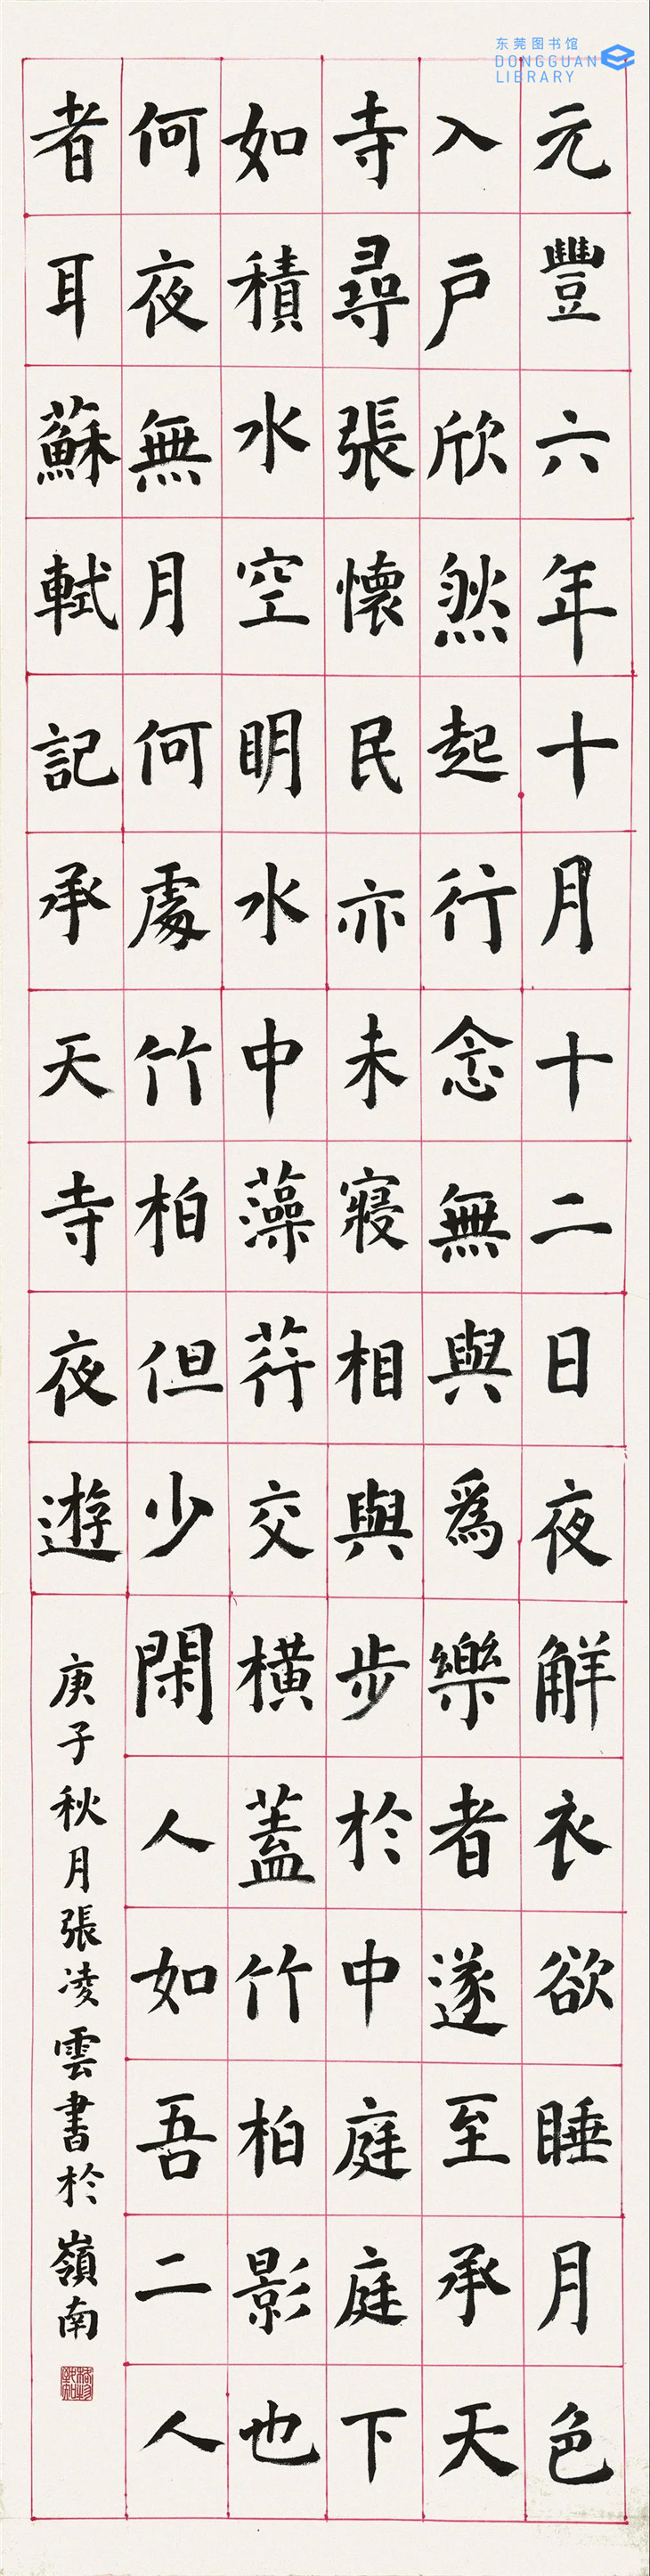 东莞图书馆
DONGGUAN
LIBRARY
元豐六年十月十二日夜解衣欲睡月色
入戶欣然起行念無與為樂者遂至承天
寺尋張懷民亦未寢相與步於中庭庭下
如積水空明水中藻荇交橫蓋竹柏影也
何夜無月何處竹柏但少閑人如吾二人
者耳蘇軾記承天寺夜遊
庚子秋月張凌雲書於嶺南